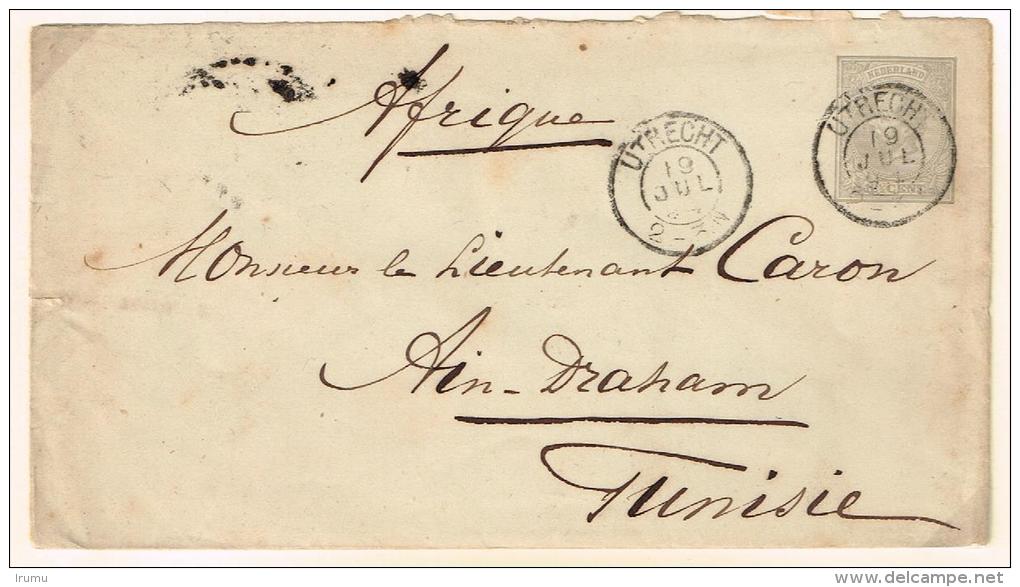 Afrique
NEDERLAND
CENT
UTRECHT
19
JUL
UTRECHT
19
JUL
Monsieur le Lieutenant Caron
Ain-Draham
Tunisie
Irumu
delcampe.net